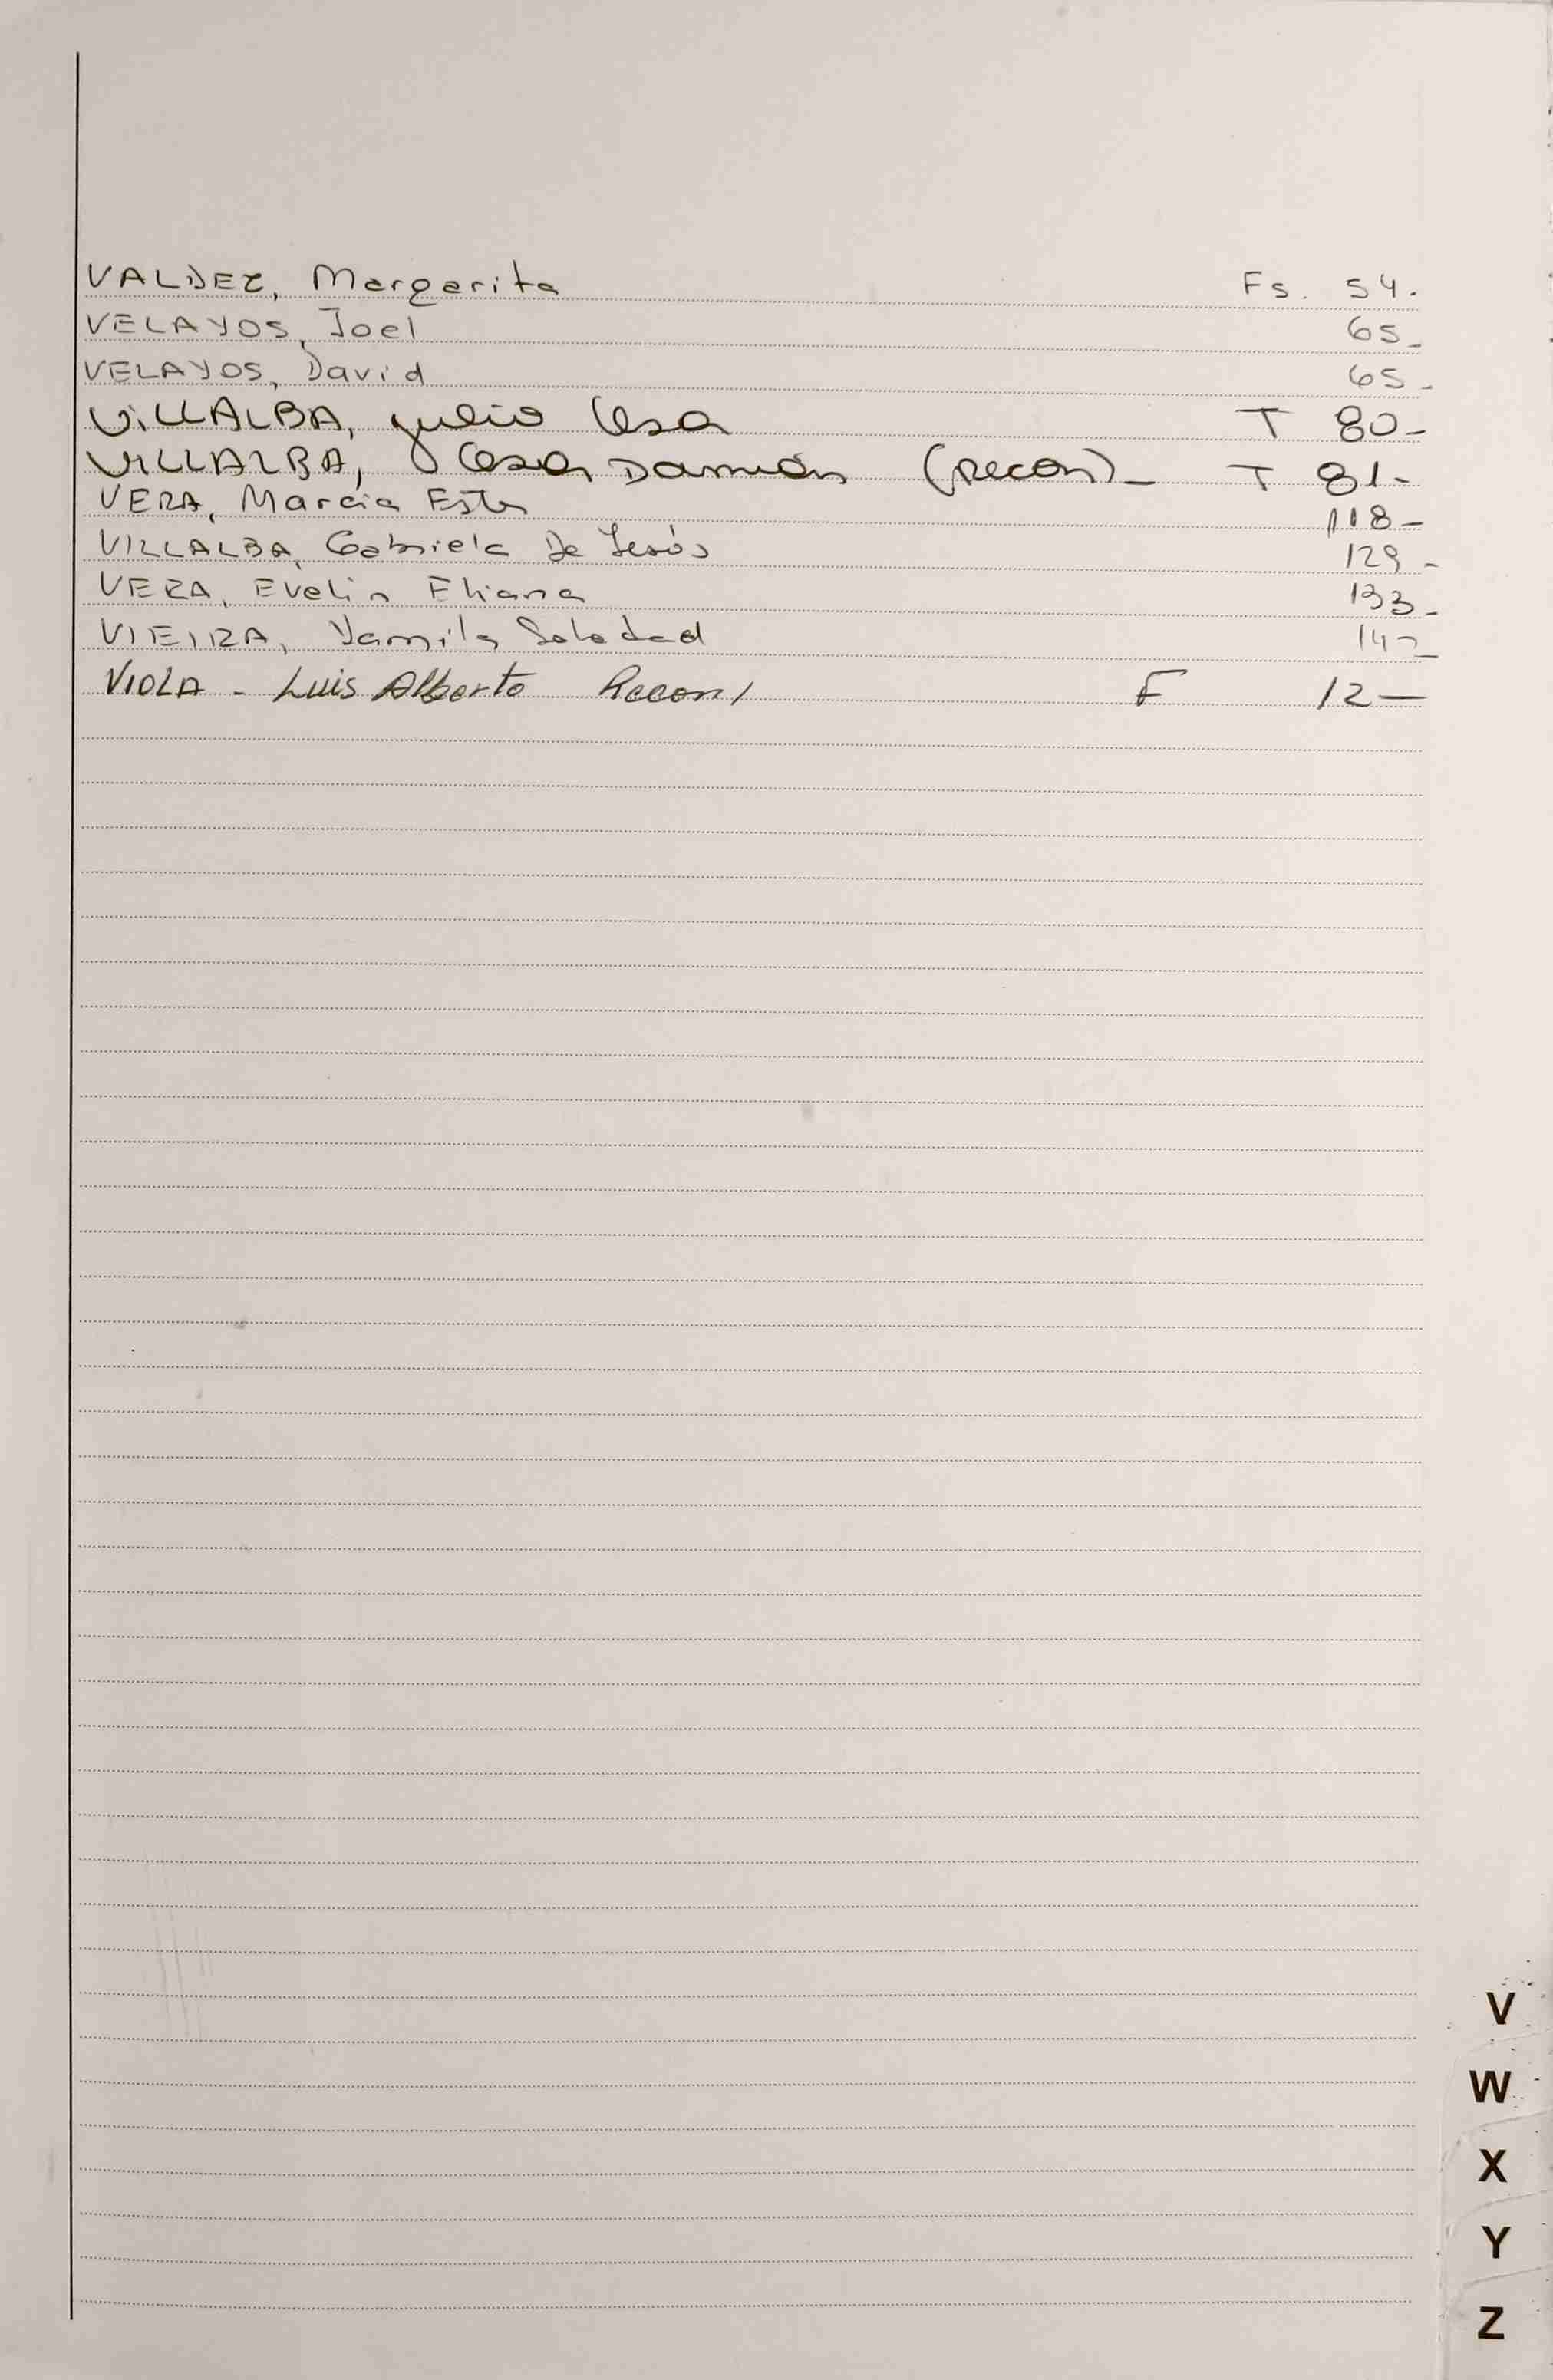 VALDEZ, Margarita Fs. 54.
VELAYOS, Joel 65-
VELAYOS, David 65-
VILLALBA, Julio Cesar T 80-
VILLALBA, Cesar Damián (Recon)- T 81-
VERA, Marcia Ester 118-
VILLALBA, Gabriela De Jesús 129-
VERA, Evelin Eliana 133-
VIEIRA, Yamila Soledad
VIOLA - Luis Alberto Recon/ F 12-
V
W
X
Y
Z